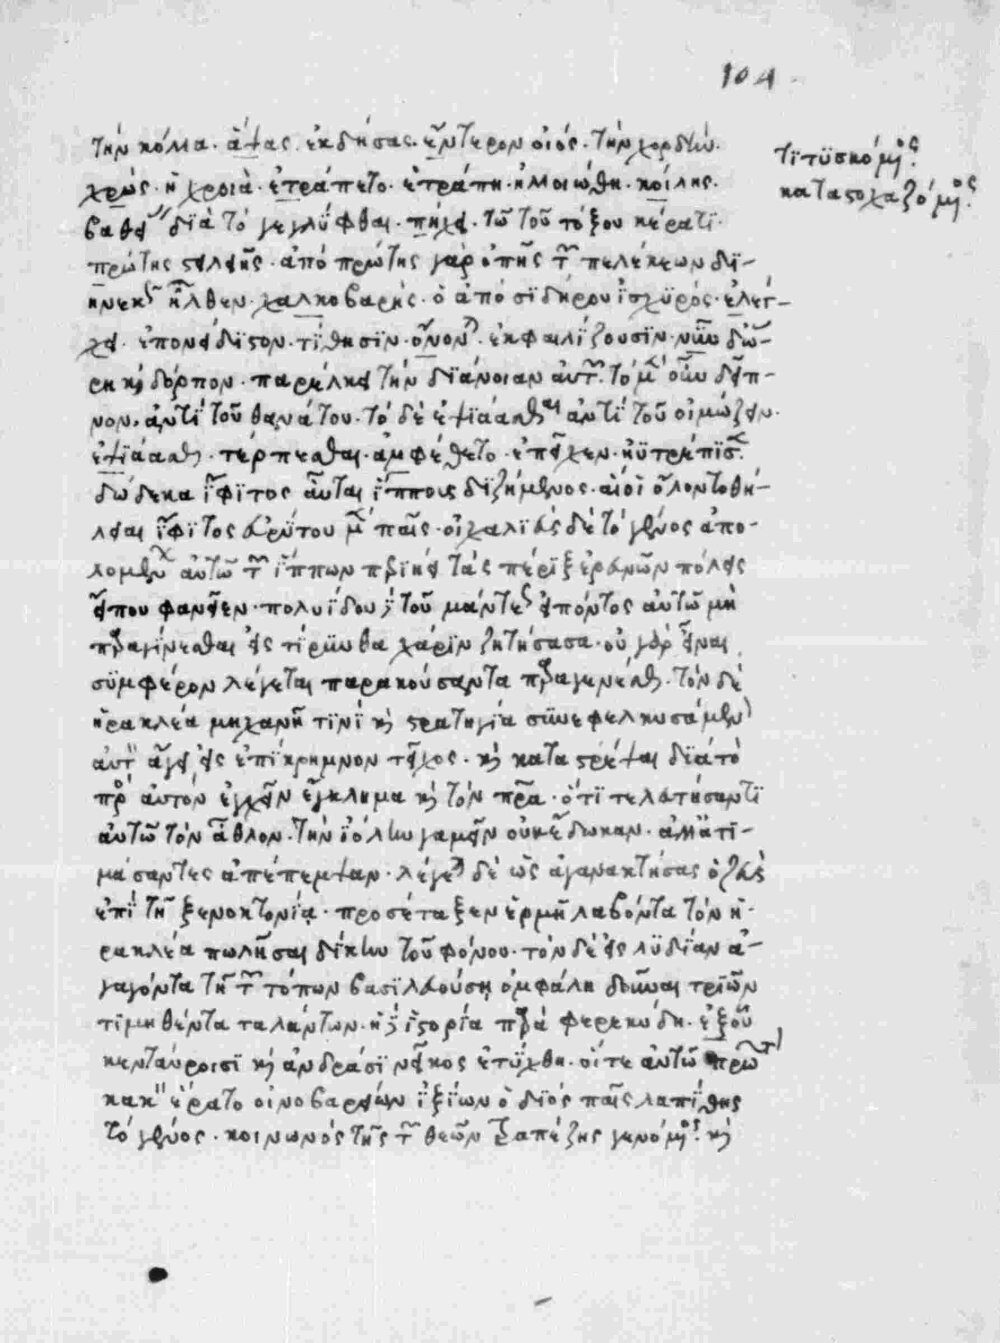 104
τὴν κόλλα. ἅψας. ἐκδήσας. ἔντερον οἰός. τὴν χορδήν.
τιτυσκόμενος.
χρώς. ἡ χροιά. ἐτράπετο. ἐτράπη. ἠλλοιώθη. κοίλης.
καταστοχαζόμενος.
βαθεί διὰ τὸ γεγλύφθαι. πήχει. τῶ τοῦ τόξου κέρατι.
πρώτης στειλειῆς. ἀπὸ πρώτης γὰρ ὀπῆς τῶν πελέκεων δι-
ηνεκῶς ἦλθεν. χαλκοβαρής. ὁ ἀπὸ σιδήρου ἰσχυρός. ἐλέγ-
χει. ἐπονείδιστον. τίθησιν. ὄνον. ἐκφαυλίζουσιν. νῦν δ' ὥ-
ρη καὶ δόρπον. παρέλκει τὴν διάνοιαν αὐτῶν. τὸ μὲν οὖν δεῖπ-
νον. ἀντὶ τοῦ θανάτου. τὸ δὲ ἐψιάασθαι ἀντὶ τοῦ οἰμώζειν.
ἐψιάασθαι. τέρπεσθαι. ἀμφέθετο. ἐπεῖχεν. ηὐτρέπισε.
δώδεκα ἴφιτος αὖται ἵππους διζήμενος. αἵ οἱ ὄλοντο θή-
λειαι ἴφιτος εὐρύτου μὲν παῖς. οἰχαλιεὺς δὲ τὸ γένος ἀπο-
λομένων αὐτῶ τῶν ἵππων περιήει τὰς πέριξ ἐρευνῶν πόλεις
εἴπου φανεῖεν. πολυΐδου δὲ τοῦ μάντεως εἰπόντος αὐτῶ μὴ
παραγίνεσθαι εἰς τίρυνθα χάριν ζητήσασα. οὐ γὰρ εἶναι
σύμφερον λέγεται παρακούσαντα παραγενέσθαι. τὸν δὲ
ἡρακλέα μηχανῆ τινὶ καὶ στρατηγία συνεφελκυσάμενον
αὐτὸν ἄγει εἰς ἐπίκρημνον τεῖχος. καὶ καταστρέψαι διὰ τὸ
πρὸς αὐτὸν ἔχειν ἔγκλημα καὶ τὸν πατέρα. ὅτι τελευτήσαντι
αὐτῶ τὸν ἆθλον. τὴν ἰόλην γαμεῖν οὐκ ἔδωκαν. ἀλλ' ἀτι-
μάσαντες ἀπέπεμψαν. λέγεται δὲ ὡς ἀγανακτήσας ὁ ζεὺς
ἐπὶ τῆ ξενοκτονία. προσέταξεν ἑρμῆ λαβόντα τὸν ἡ-
ρακλέα πωλῆσαι δίκην τοῦ φόνου. τὸν δὲ εἰς λυδίαν ἀ-
γαγόντα τῆ τῶν τόπων βασιλευούση ὀμφάλη δοῦναι τριῶν
τιμηθέντα ταλάντων. ἡ ἱστορία παρὰ φερεκύδη. ἐξ οὗ
κενταύροισι καὶ ἀνδράσι νεῖκος ἐτύχθη. οἵ τε αὐτῶ πρώτω
κακὸν εὕρατο οἰνοβαρείων ἰξίων ὁ διὸς παῖς λαπίθης
τὸ γένος. κοινωνὸς τῆς τῶν θεῶν τραπέζης γενόμενος. καὶ